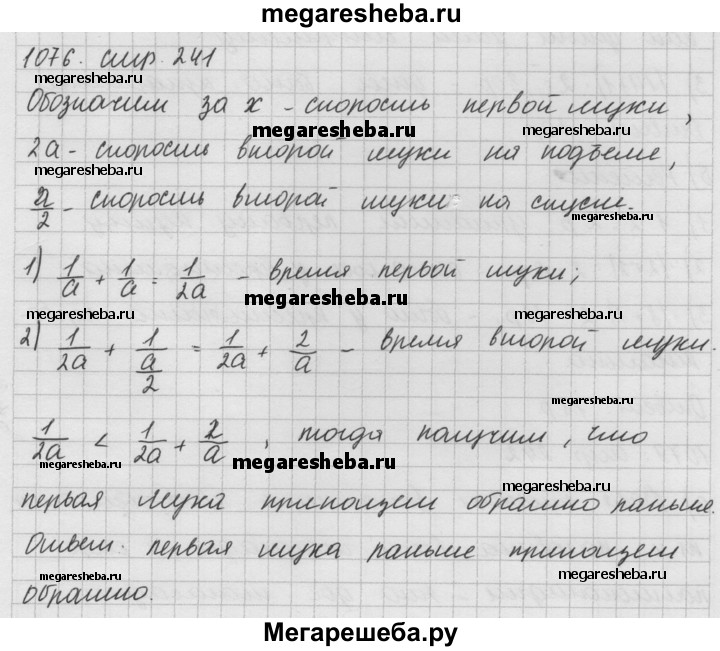 megaresheba.ru
1076. стр. 241
megaresheba.ru megaresheba.ru
Обозначим за x – скорость первой мухи,
megaresheba.ru megaresheba.ru
2a – скорость второй мухи на подъеме,
megaresheba.ru
a/2 – скорость второй мухи на спуске.
megaresheba.ru
1) 1/a + 1/a = 1/2a – время первой мухи;
megaresheba.ru megaresheba.ru
2) 1/2a + 1/(a/2) = 1/2a + 2/a – время второй мухи.
megaresheba.ru
1/2a < 1/2a + 2/a, тогда получим, что
megaresheba.ru megaresheba.ru
первая муха приползет обратно раньше.
megaresheba.ru
Ответ: первая муха раньше приползет
megaresheba.ru megaresheba.ru
обратно.
Мегарешеба.ру